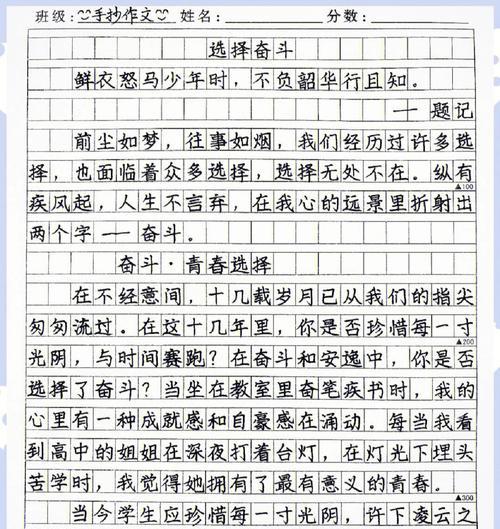 班级：手抄作文 姓名： 分数：
选择奋斗
鲜衣怒马少年时，不负韶华行且知。
— 题记
前尘如梦，往事如烟，我们经历过许多选
择，也面临着众多选择，选择无处不在。纵有
▲100
疾风起，人生不言弃，在我心的远景里折射出
两个字 — 奋斗。
奋斗·青春选择
在不经意间，十几载岁月已从我们的指尖
匆匆流过。在这十几年里，你是否珍惜每一寸
▲200
光阴，与时间赛跑？在奋斗和安逸中，你是否
选择了奋斗？当坐在教室里奋笔疾书时，我的
心里有一种成就感和自豪感在涌动。每当我看
到高中的姐姐在深夜打着台灯，在灯光下埋头
苦学时，我觉得她拥有了最有意义的青春。
▲300
当今学生应珍惜每一寸光阴，许下凌云之